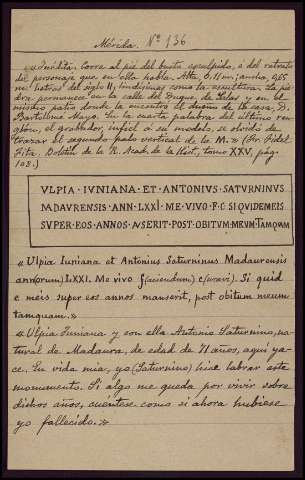 Mérida. Nº 136
«Inédita. Corre al pié del busto esculpido, ó del retrato
del personaje que en ella habla. Alta, 0,11 m; ancha, 0,65
m; letras del siglo II, lindísimas como la escultura. La pie-
dra permanece en la calle del Zapar de Zelas, y en el
mismo patio donde la encontró el dueño de la casa, D.
Bartolomé Mayo. En la cuarta palabra del último ren-
glón, el grabador, infiel á su modelo, se olvidó de
trazar el segundo palo vertical de la M.» (Sr. Fidel
Fita. Boletín de la R. Acad. de la Hist., tomo XXV, pág.
108.)
VLPIA IVNIANA ET ANTONIVS SATVRNINVS
MADAVRENSIS ANN LXXI ME VIVO F·C SI QVID EMEIS
SVPER EOS ANNOS NSERIT POST OBITVM MEVM TAMQVAM
«Ulpia Iuniana et Antonius Saturninus Madaurensis
ann(orum) LXXI. Me vivo f(aciendum) c(uravi). Si quid
e meis super eos annos manserit, post obitum meum
tamquam.»
«Ulpia Juniana y con ella Antonio Saturnino, na-
tural de Madaura, de edad de 71 años, aquí ya-
ce. En vida mia, yo (Saturnino) hice labrar este
monumento. Si algo me queda por vivir sobre
dichos años, cuéntese como si ahora hubiese
yo fallecido.»